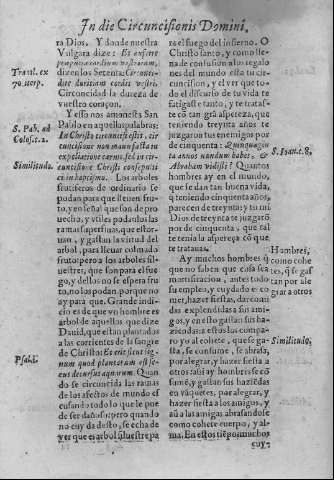 In die Circuncisionis Domini.
ra Dios. Y donde nuestra
Vulgata dize: Et auferte
præputia cordium vestrorum,
dizen los Setenta: Circunci-
dite duritiam cordis vestri.
Circuncidad la dureza de
vuestro coraçon.
Y esto nos amonesta San
Pablo en aquellas palabras:
In Christo circuncisi estis, cir
cuncisione non manufacta in
expoliatione carnis, sed in cir-
cuncisione Christi consepulti
ei in baptismo. Los arboles
frutiferos de ordinario se
podan para que lleuen fru-
to, y en señal que son de pro
uecho, y vtiles podaulos las
ramas superfluas, que estor-
uan, y gastan la virtud del
arbol, para lleuar colmado
fruto: pero a los arboles silue-
stres, que son para el fue-
go, y dellos no se espera fru
to, no los podan: porque no
ay para que. Grande indi-
cio es de que vn hombre es
arbol de aquellos que dize
Dauid, que estan plantados
a las corrientes de la sangre
de Christo: Et erit sicut lig-
num quod plantatum est se-
cus decursus aquarum. Quan
do se circuncida las ramas
de los afectos de mundo es
cusando todo lo que le pue
de ser dañoso: pero quando
no cuyda desto, se echa de
ver que es arbol siluestre pa
Transl. ex
70. interp.
S. Pab. ad
Colos. c. 2.
Similitudo.
Psal. 1.
ra el fuego del infierno. O
Christo santo, y como lle-
na de confusion a los regalo
nes del mundo esta tu cir-
cuncision, y el ver que to-
do el discurso de tu vida te
fatigaste tanto, y te tratas-
te cõ tan grã aspereza, que
teniendo treynta años te
juzgaron tus enemigos por
de cincuenta: Quinquagin
ta annos nondum habes, &
Abraham vidisti? Quantos
hombres ay en el mundo,
que se dan tan buena vida,
q̃ teniendo cincuenta años,
parecen de treynta: y mi
Dios de treynta te juzgarõ
por de cincuenta, que tal
te tenia la aspereça cõ que
te tratauas.
Ay muchos hombres q̃
que no saben que cosa sea
mortificacion, antes todo
su empleo, y cuydado e co-
mer, hazer fiestas, dar comi
das esplendidas a sus ami-
gos, y en esto gastan sus ha-
ziendas: a estos los compa-
ro yo al cohete, que se gas-
ta, se consume, se abrasa,
por alegrar, y hazer fiesta a
otros: assi ay hombres se cõ
sumẽ, y gastan sus haziẽdas
en vãquetes, por alegrar, y
hazer fiesta a los amigos, y
aũ a las amigas abrasandose
como cohete cuerpo, y al-
ma. En estos tiẽpos muchos
S. Joan. c. 8.
Hombres,
como cohe
tes, q̃ se gas
tan por ale
grar a otros
Similitudo.
cuy-